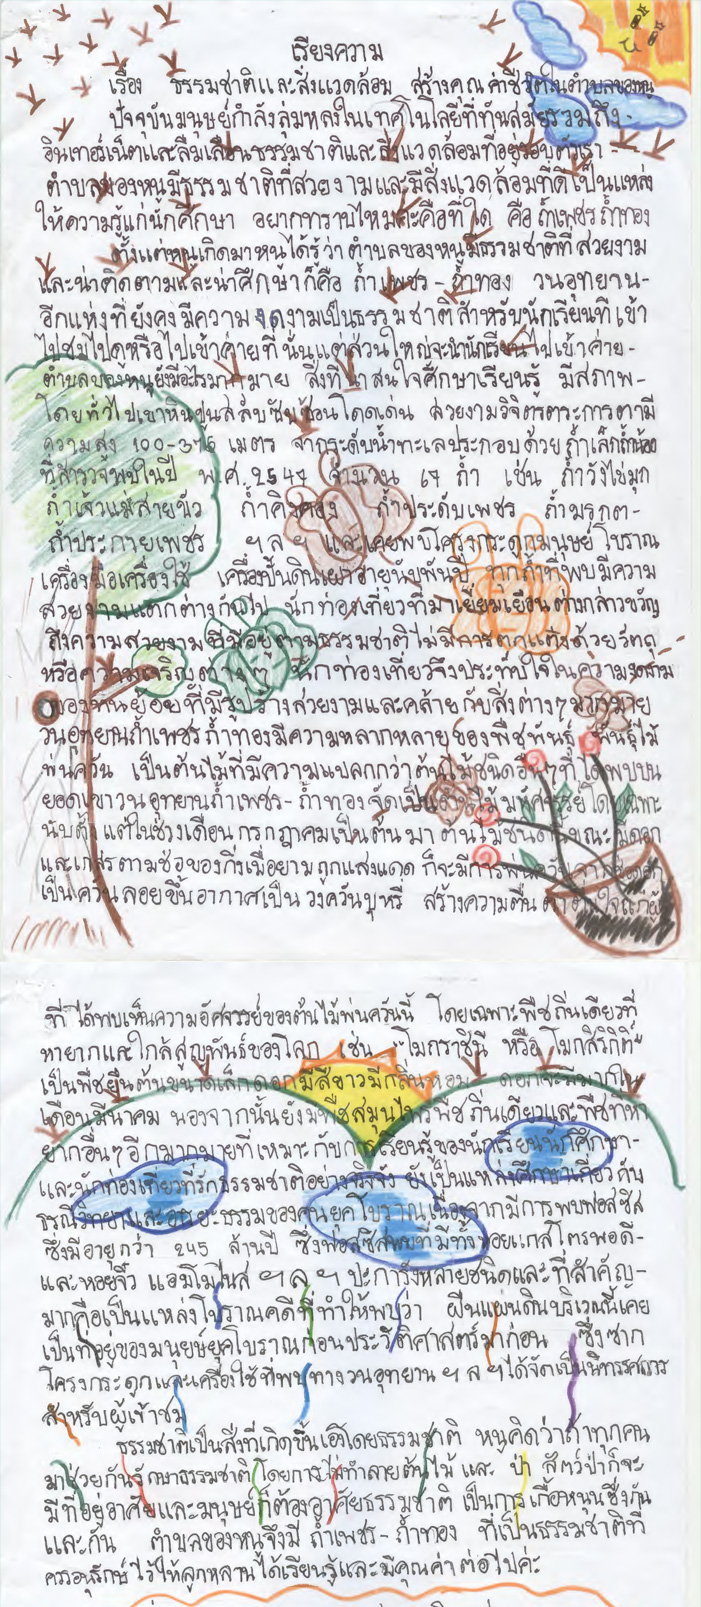 เรียงความ
เรื่อง ธรรมชาติและสิ่งแวดล้อม สร้างคุณค่าชีวิตในตำบลของหนู
ปัจจุบันมนุษย์กำลังลุ่มหลงในเทคโนโลยีที่ทันสมัยรวมถึง-
อินเทอร์เน็ตและลืมเลือนธรรมชาติและสิ่งแวดล้อมที่อยู่รอบตัวเรา
ตำบลของหนูมีธรรมชาติที่สวยงามและมีสิ่งแวดล้อมที่ดีเป็นแหล่ง
ให้ความรู้แก่นักศึกษา อยากทราบไหมคะคือที่ใด คือ ถ้ำเพชร ถ้ำทอง
ตั้งแต่หนูเกิดมาหนูได้รู้ว่าตำบลของหนูมีธรรมชาติที่สวยงาม
และน่าติดตามและน่าศึกษาก็คือ ถ้ำเพชร-ถ้ำทอง วนอุทยาน-
อีกแห่งที่ยังคงมีความงดงามเป็นธรรมชาติสำหรับนักเรียนที่เข้า
ไปชมไปดูหรือไปเข้าค่ายที่นั่นแต่ส่วนใหญ่จะนำนักเรียนไปเข้าค่าย-
ตำบลของหนูยังมีอะไรมากมาย สิ่งที่น่าสนใจศึกษาเรียนรู้ มีสภาพ-
โดยทั่วไปเขาหินปูนสลับซับซ้อนโดดเด่น สวยงามวิจิตรตระการตามี
ความสูง เมตร จากระดับน้ำทะเลประกอบด้วย ถ้ำเล็กถ้ำน้อย
ที่สำรวจพบในปี พ.ศ. 2547 จำนวน 67 ถ้ำ เช่น ถ้ำวังไข่มุก
ถ้ำเจ้าแม่สายบัว ถ้ำคิงคอง ถ้ำประดับเพชร ถ้ำมรกต-
ถ้ำประกายเพชร ฯลฯ และเคยพบโครงกระดูกมนุษย์โบราณ
เครื่องมือเครื่องใช้ เครื่องปั้นดินเผาอายุนับพันปี ทุกถ้ำที่พบมีความ
สวยงามแตกต่างกันไป นักท่องเที่ยวที่มาเยี่ยมเยือนต่างกล่าวขวัญ
ถึงความสวยงามที่มีอยู่ตามธรรมชาติไม่มีการตกแต่งด้วยวัตถุ
หรือความเจริญต่างๆ นักท่องเที่ยวจึงประทับใจในความงดงาม
ของหินย้อยที่มีรูปร่างสวยงามและคล้ายกับสิ่งต่างๆมากมาย
วนอุทยานถ้ำเพชรถ้ำทองมีความหลากหลายของพืชพันธุ์ พันธุ์ไม้
พ่นควัน เป็นต้นไม้ที่มีความแปลกกว่าต้นไม้ชนิดอื่นๆที่ได้พบบน
ยอดเขาวนอุทยานถ้ำเพชร-ถ้ำทองจัดเป็นต้นไม้มหัศจรรย์โดยเฉพาะ
นับตั้งแต่ในช่วงเดือนกรกฎาคมเป็นต้นมา ต้นไม้ชนิดนี้ขณะมีดอก
และเกสรตามช่อของกิ่งเมื่อยามถูกแสงแดด ก็จะมีการพ่นควันจากช่อดอก
เป็นควันลอยขึ้นอากาศเป็นวงควันบุหรี่ สร้างความตื่นตาตื่นใจแก่ผู้
ที่ได้พบเห็นความอัศจรรย์ของต้นไม้พ่นควันนี้ โดยเฉพาะพืชถิ่นเดียวที่
หายากและใกล้สูญพันธุ์ของโลก เช่น "โมกราชินี หรือ โมกสิริกิติ์"
เป็นพืชยืนต้นขนาดเล็กดอกมีสีขาวมีกลิ่นหอม ดอกจะมีมากใน
เดือนมีนาคม นอกจากนั้นยังมีพืชสมุนไพรพืชถิ่นเดียวและพืชที่หา
ยากอื่นๆอีกมากมายที่เหมาะกับการเรียนรู้ของนักเรียนนักศึกษา-
และนักท่องเที่ยวที่รักธรรมชาติอย่างจริงจัง ยังเป็นแหล่งศึกษาเกี่ยวกับ
ธรณีวิทยาและอารยะธรรมของคนยุคโบราณเนื่องจากมีการพบฟอสซิส
ซึ่งมีอายุกว่า 245 ล้านปี ซึ่งฟอสซิสหอยที่มีทั้งหอยแกสโตรพอดี-
และหอยจิ๋ว แอมโมไนส ฯลฯ ปะการังหลายชนิดและที่สำคัญ-
มากคือเป็นแหล่งโบราณคดีที่ทำให้พบว่า ผืนแผ่นดินบริเวณนี้เคย
เป็นที่อยู่ของมนุษย์ยุคโบราณก่อนประวัติศาสตร์มาก่อน ซึ่งซาก
โครงกระดูกและเครื่องใช้ที่พบทางวนอุทยาน ฯลฯ ได้จัดเป็นนิทรรศการ
สำหรับผู้เข้าชม
ธรรมชาติเป็นสิ่งที่เกิดขึ้นเองโดยธรรมชาติ หนูคิดว่าถ้าทุกคน
มาช่วยกันรักษาธรรมชาติโดยการไม่ทำลายต้นไม้ และ ป่า สัตว์ป่าก็จะ
มีที่อยู่อาศัยและมนุษย์ก็ต้องอาศัยธรรมชาติ เป็นการเกื้อหนุนซึ่งกัน
และกัน ตำบลของหนูจึงมี ถ้ำเพชร-ถ้ำทอง ที่เป็นธรรมชาติที่
ควรอนุรักษ์ไว้ให้ลูกหลานได้เรียนรู้และมีคุณค่าต่อไปค่ะ